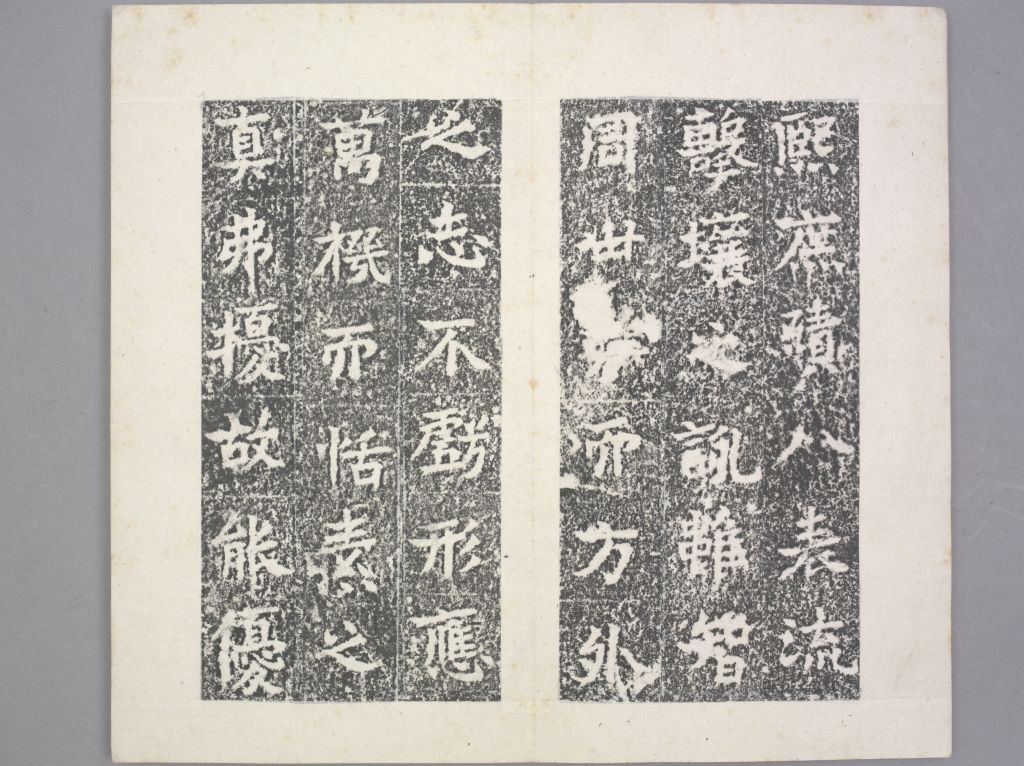 熙庶績八表流
擊壤之雖智
周世而方外
之志不虧形應
萬機而恬素之
真弗擾故能優